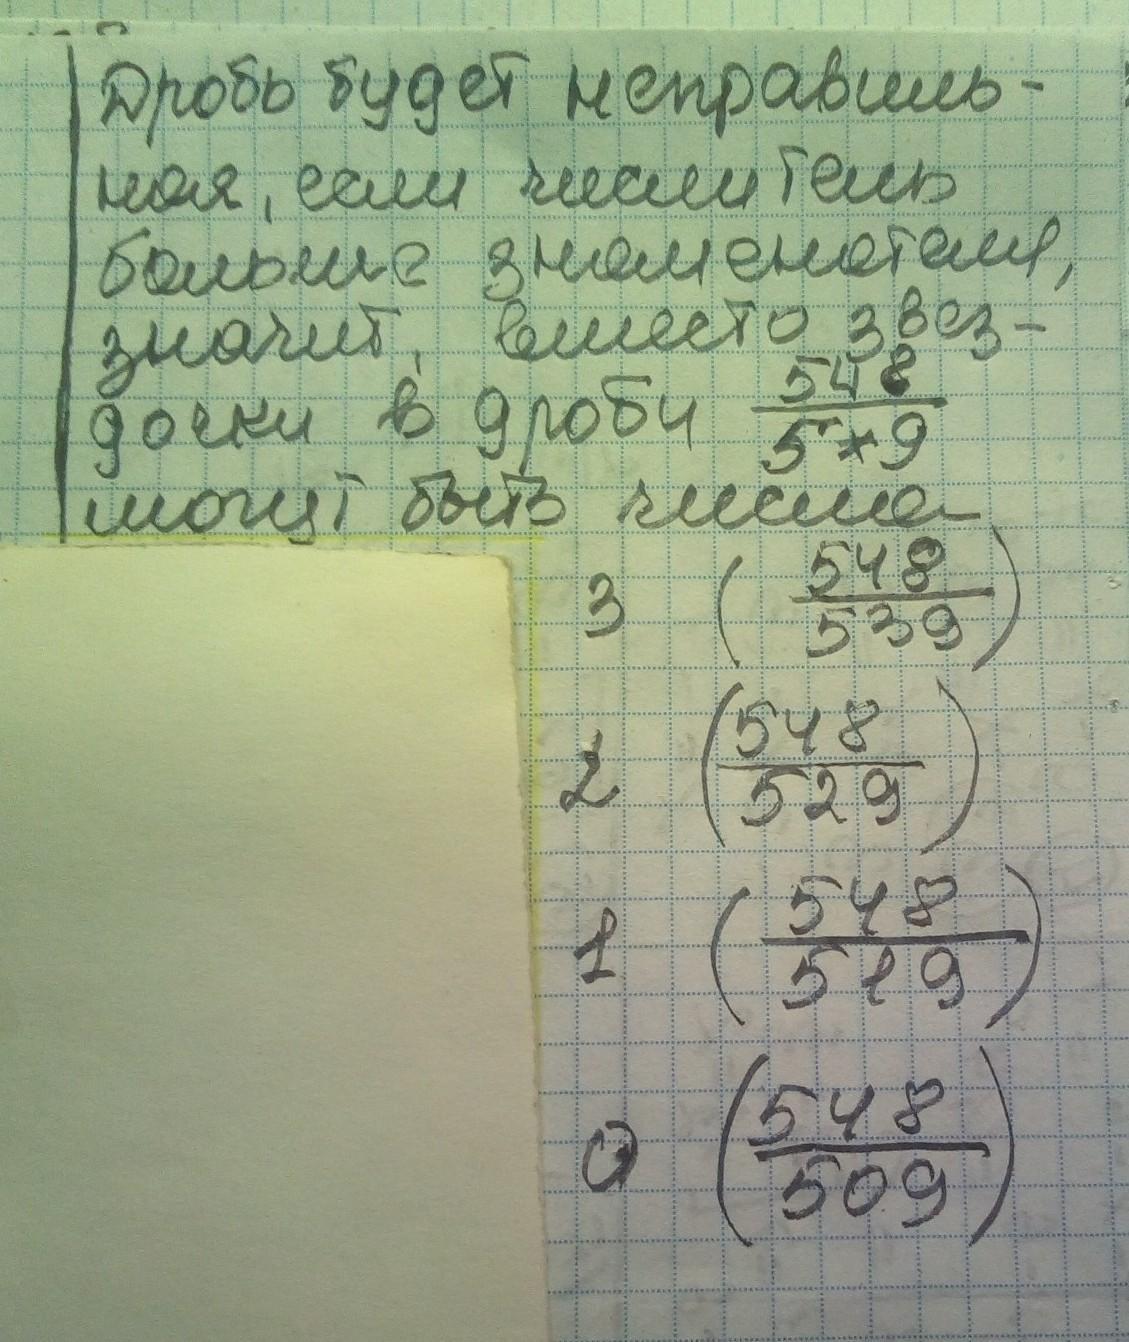 Дробь будет неправиль-
ная, если числитель
больше знаменателя,
значит, вместо звез-
дочки в дроби 548/5*9
могут быть числа
3 (548/539)
2 (548/529)
1 (548/519)
0 (548/509)